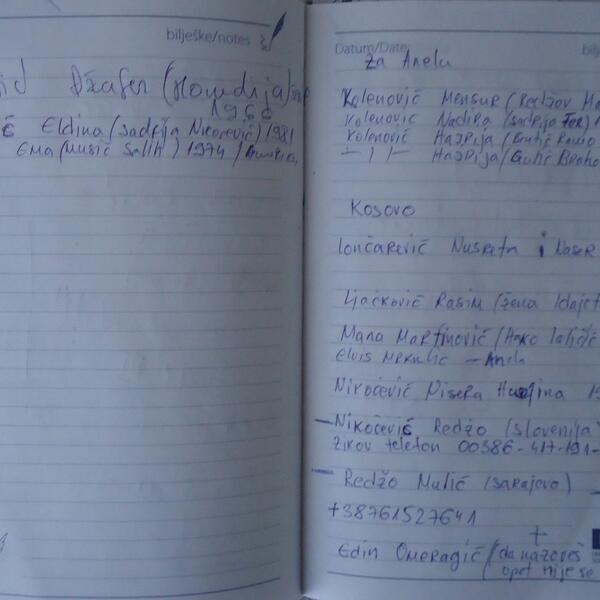 bilješke/notes
Džafer (Hamdija)
1960
Eldina (Sadrija Nikočević) 1981
Ema (Mušić Salih) 1974
Datum/Date
bilj
Za Anelu
Kolenović Mensur (Redžov
Kolenović Nadira (Sadrija
Kolenović Hajrija/Gutić Ramo
— 1 — Hajrija/Gutić Braho
Kosovo
Lončarević Nusreta i Naser
Ljačković Rasim (žena Idajet
Mana Martinović (Hako
Elvis Mrkulić – Anela
Nikočević Disera
– Nikočević Redžo (Slovenija)
Zikov telefon 00386-417-191-
– Redžo Mulić (Sarajevo)
+38761527641
+
Edin Omeragić (da nazoveš
opet nije se